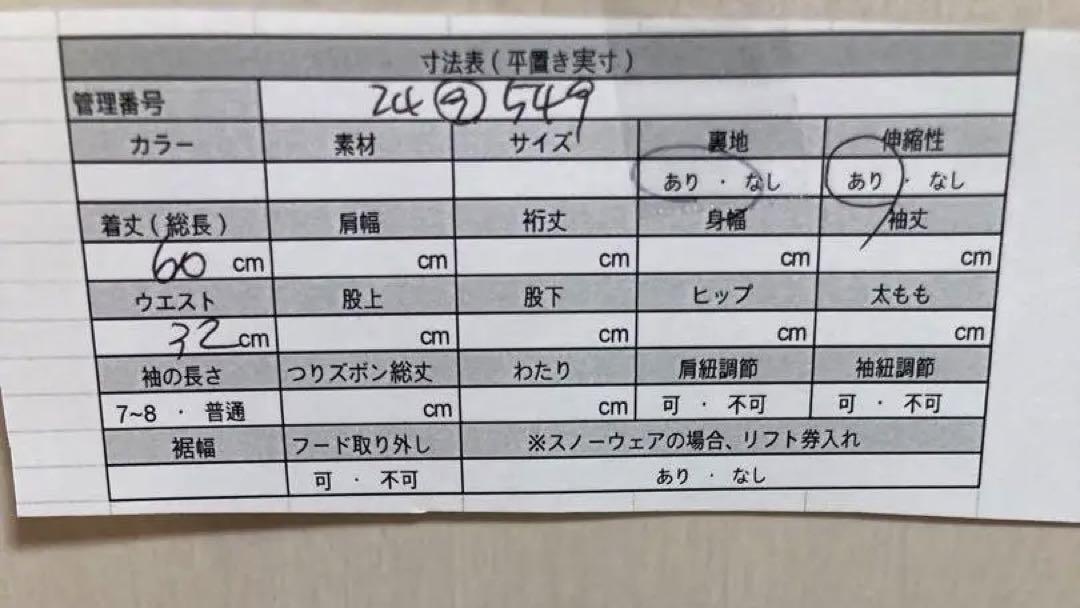 寸法表(平置き実寸)
管理番号 24⑨549
カラー 素材 サイズ 裏地 伸縮性
あり ・ なし あり ・ なし
着丈(総長) 肩幅 裄丈 身幅 袖丈
60 cm cm cm cm cm
ウエスト 股上 股下 ヒップ 太もも
32 cm cm cm cm cm
袖の長さ つりズボン総丈 わたり 肩紐調節 袖紐調節
7~8 ・ 普通 cm cm 可 ・ 不可 可 ・ 不可
裾幅 フード取り外し ※スノーウェアの場合、リフト券入れ
可 ・ 不可 あり ・ なし